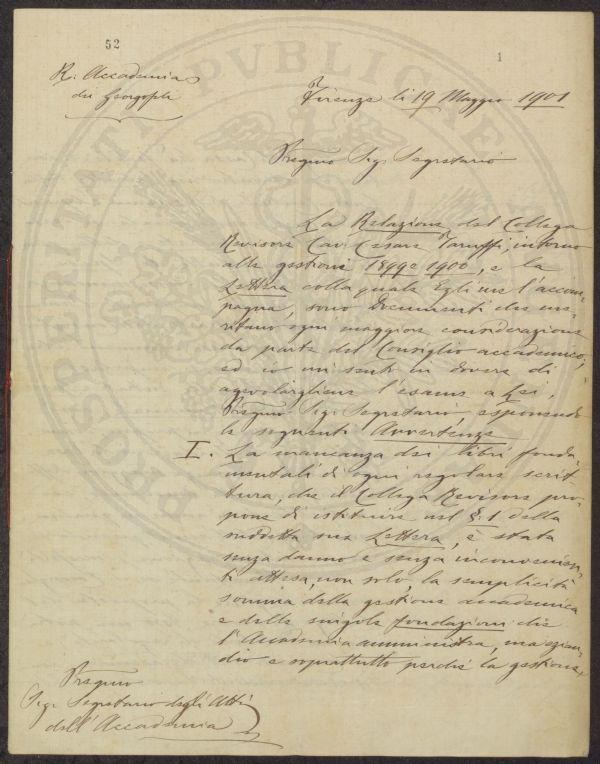 52
1
R. Accademia
dei Georgofili
Firenze li 19 Maggio 1901
Pregmo Sig. Segretario
La Relazione del Collega
Revisore Cav. Cesare Taruffi, intorno
alle gestioni 1899 e 1900, e la
Lettera colla quale Egli me l'accom-
pagna, sono Documenti che me-
ritano ogni maggiore considerazione
da parte del Consiglio accademico;
ed io mi sento in dovere di
agevolargliene l'esame a Lei,
Pregmo Sig. Segretario esponendo
le seguenti Avvertenze
I. La mancanza dei libri fonda-
mentali di ogni regolare scrit-
tura, che il Collega Revisore pro-
pone di istituire nel §. 1 della
suddetta sua Lettera, è stata
senza danno e senza inconvenien-
ti attesa, non solo, la semplicità
somma della gestione accademica
e delle singole fondazioni che
l'Accademia amministra, ma ezian-
dio e soprattutto perché la gestione,
Pregmo
Sig. Segretario degli Atti
dell'Accademia
PROSPERITATI PUBLICAE